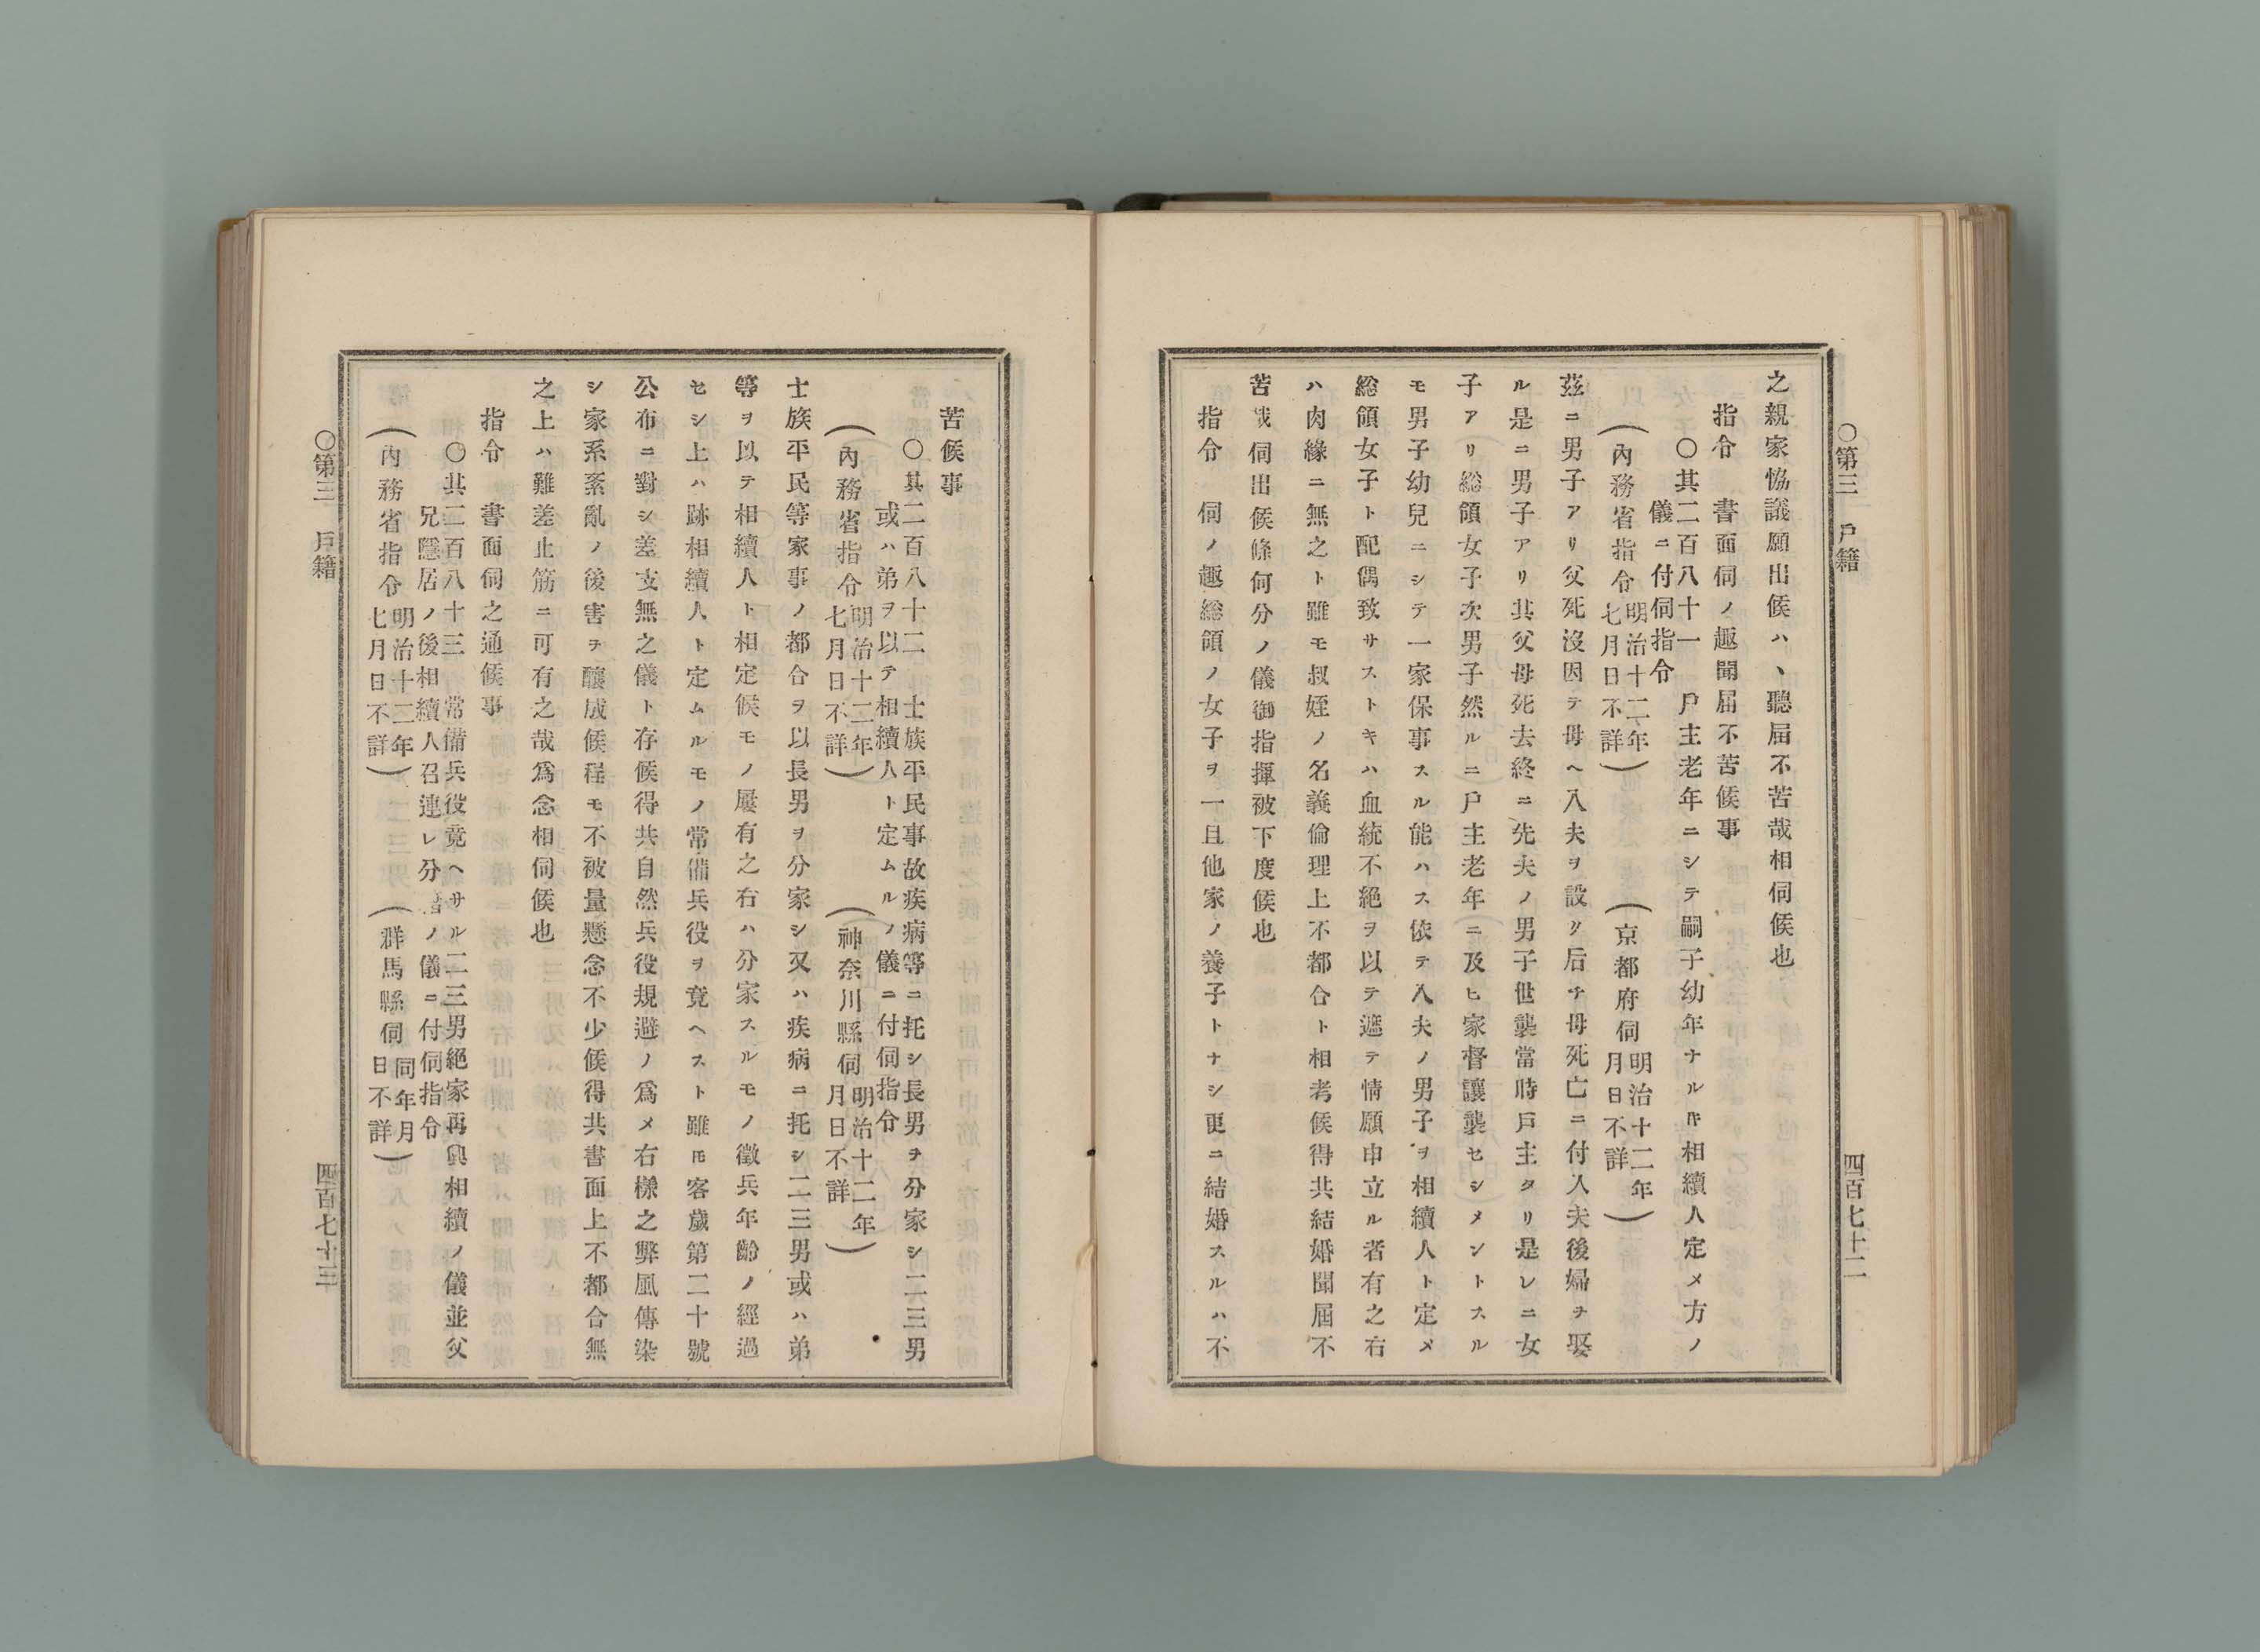 ○第三　戶籍　四百七十二
之親家恊議願出候ハヽ聽屆不苦哉相伺候也
指令　書面伺ノ趣聞屆不苦候事
○其二百八十一　戶主老年ニシテ嗣子幼年ナル時相續人定メ方ノ
儀ニ付伺指令
（內務省指令明治十二年七月日不詳）　（京都府伺明治十二年月日不詳）
茲ニ男子アリ父死沒因テ母ヘ入夫ヲ設ケ后チ母死亡ニ付入夫後婦ヲ娶
ル是ニ男子アリ其父母死去終ニ先夫ノ男子世襲當時戶主タリ是レニ女
子アリ総領女子次男子然ルニ戶主老年ニ及ヒ家督讓襲セシメントスル
モ男子幼兒ニシテ一家保事スル能ハス依テ入夫ノ男子ヲ相續人ト定メ
総領女子ト配偶致サストキハ血統不絕ヲ以テ遮テ情願申立ル者有之右
ハ肉緣ニ無之ト雖モ叔姪ノ名義倫理上不都合ト相考候得共結婚聞屆不
苦哉伺出候條何分ノ儀御指揮被下度候也
指令　伺ノ趣総領ノ女子ヲ一且他家ノ養子トナシ更ニ結婚スルハ不
苦候事
○其二百八十二　士族平民事故疾病等ニ托シ長男ヲ分家シ二三男
或ハ弟ヲ以テ相續人ト定ムルノ儀ニ付伺指令
（內務省指令明治十二年七月日不詳）　（神奈川縣伺明治十二年月日不詳）
士族平民等家事ノ都合ヲ以長男ヲ分家シ又ハ疾病ニ托シ二三男或ハ弟
等ヲ以テ相續人ト相定候モノ屢有之右ハ分家スルモノ徵兵年齡ノ經過
セシ上ハ跡相續人ト定ムルモノ常備兵役ヲ竟ヘスト雖𪜈客歲第二十號
公布ニ對シ差支無之儀ト存候得共自然兵役規避ノ爲メ右樣之弊風傳染
シ家系紊亂ノ後害ヲ釀成候程モ不被量懸念不少候得共書面上不都合無
之上ハ難差止筋ニ可有之哉爲念相伺候也
指令　書面伺之通候事
○其二百八十三　常備兵役竟ヘサル二三男絕家再興相續ノ儀並父
兄隱居ノ後相續人召連レ分籍ノ儀ニ付伺指令
（內務省指令明治十二年七月日不詳）　（群馬縣伺同年月日不詳）
○第三　戶籍　四百七十三